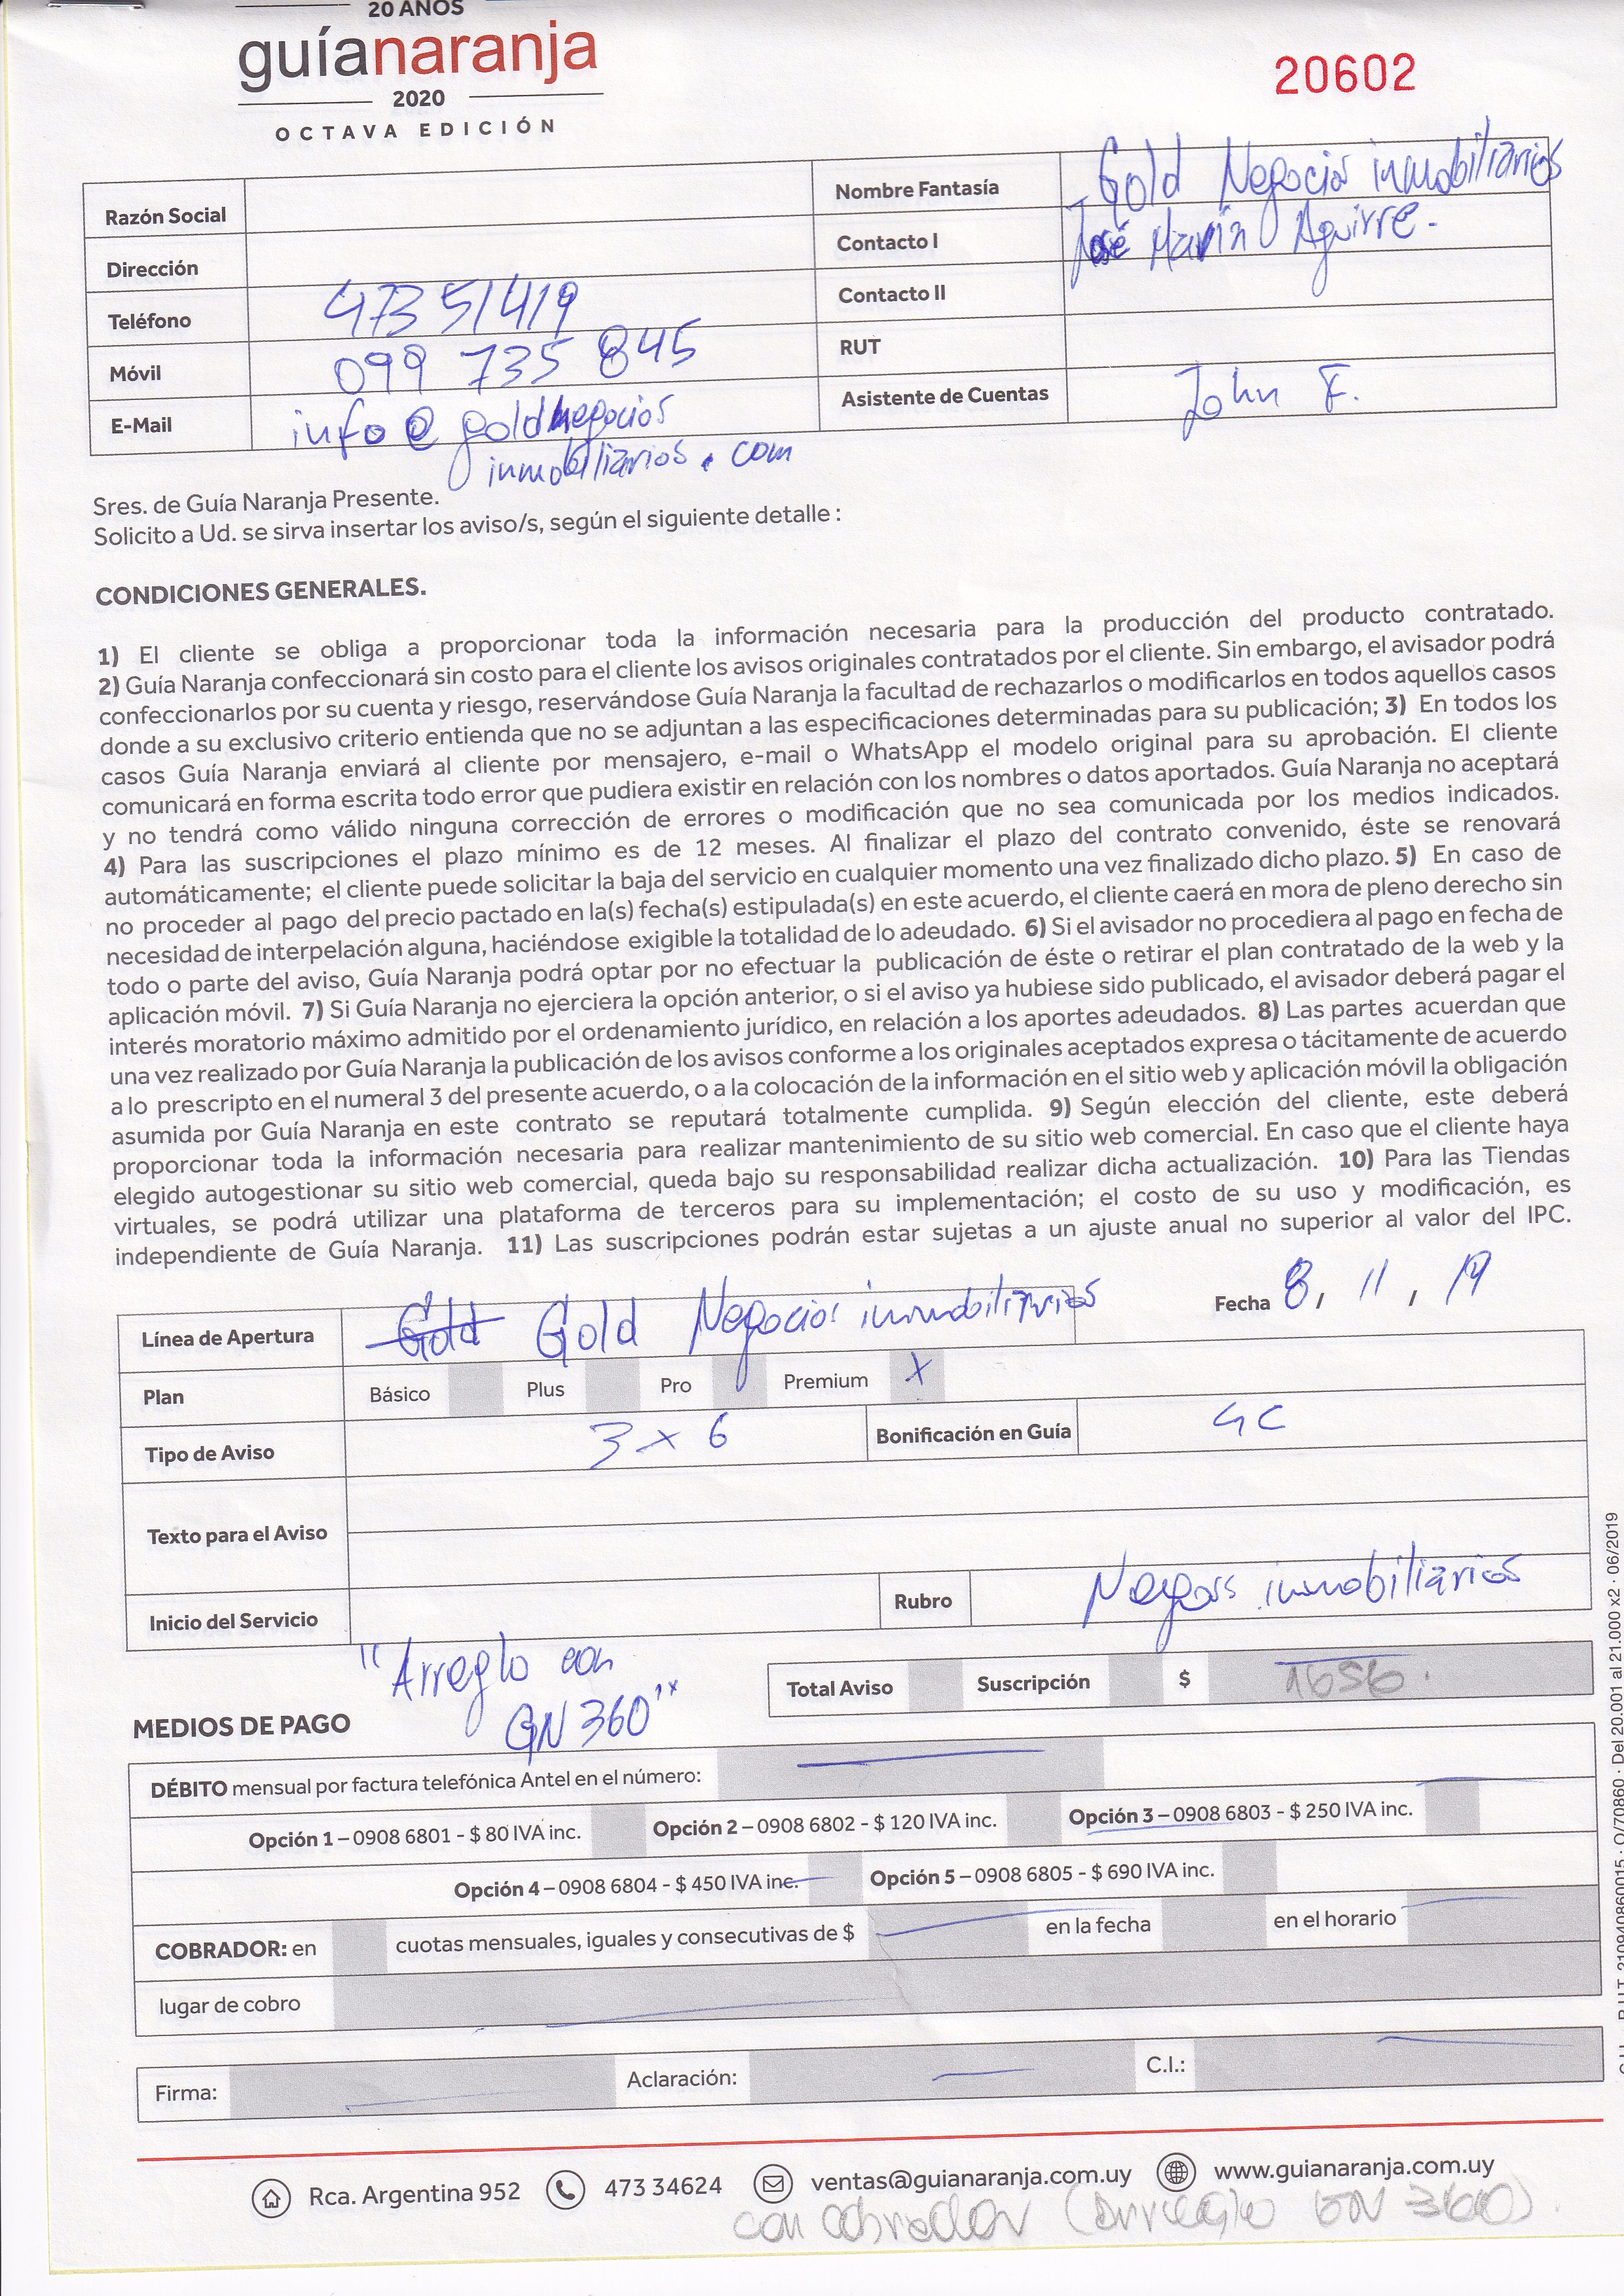 20 AÑOS
guíanaranja
2020
OCTAVA EDICIÓN
20602
Razón Social
Dirección
Teléfono 473 51419
Móvil 099 735 845
E-Mail info@goldnegocios
inmobiliarios.com
Nombre Fantasía Gold Negocios inmobiliarios
Contacto I José María Aguirre.
Contacto II
RUT
Asistente de Cuentas John F.
Sres. de Guía Naranja Presente.
Solicito a Ud. se sirva insertar los aviso/s, según el siguiente detalle :
CONDICIONES GENERALES.
1) El cliente se obliga a proporcionar toda la información necesaria para la producción del producto contratado.
2) Guía Naranja confeccionará sin costo para el cliente los avisos originales contratados por el cliente. Sin embargo, el avisador podrá
confeccionarlos por su cuenta y riesgo, reservándose Guía Naranja la facultad de rechazarlos o modificarlos en todos aquellos casos
donde a su exclusivo criterio entienda que no se adjuntan a las especificaciones determinadas para su publicación; 3) En todos los
casos Guía Naranja enviará al cliente por mensajero, e-mail o WhatsApp el modelo original para su aprobación. El cliente
comunicará en forma escrita todo error que pudiera existir en relación con los nombres o datos aportados. Guía Naranja no aceptará
y no tendrá como válido ninguna corrección de errores o modificación que no sea comunicada por los medios indicados.
4) Para las suscripciones el plazo mínimo es de 12 meses. Al finalizar el plazo del contrato convenido, éste se renovará
automáticamente; el cliente puede solicitar la baja del servicio en cualquier momento una vez finalizado dicho plazo. 5) En caso de
no proceder al pago del precio pactado en la(s) fecha(s) estipulada(s) en este acuerdo, el cliente caerá en mora de pleno derecho sin
necesidad de interpelación alguna, haciéndose exigible la totalidad de lo adeudado. 6) Si el avisador no procediera al pago en fecha de
todo o parte del aviso, Guía Naranja podrá optar por no efectuar la publicación de éste o retirar el plan contratado de la web y la
aplicación móvil. 7) Si Guía Naranja no ejerciera la opción anterior, o si el aviso ya hubiese sido publicado, el avisador deberá pagar el
interés moratorio máximo admitido por el ordenamiento jurídico, en relación a los aportes adeudados. 8) Las partes acuerdan que
una vez realizado por Guía Naranja la publicación de los avisos conforme a los originales aceptados expresa o tácitamente de acuerdo
a lo prescripto en el numeral 3 del presente acuerdo, o a la colocación de la información en el sitio web y aplicación móvil la obligación
asumida por Guía Naranja en este contrato se reputará totalmente cumplida. 9) Según elección del cliente, este deberá
proporcionar toda la información necesaria para realizar mantenimiento de su sitio web comercial. En caso que el cliente haya
elegido autogestionar su sitio web comercial, queda bajo su responsabilidad realizar dicha actualización. 10) Para las Tiendas
virtuales, se podrá utilizar una plataforma de terceros para su implementación; el costo de su uso y modificación, es
independiente de Guía Naranja. 11) Las suscripciones podrán estar sujetas a un ajuste anual no superior al valor del IPC.
Fecha 8, 11, 19
Línea de Apertura Gold Gold Negocios inmobiliarios
Plan Básico Plus Pro Premium X
Tipo de Aviso 3 x 6 Bonificación en Guía GC
Texto para el Aviso
Inicio del Servicio Rubro Negocios inmobiliarios
"Arreglo con
GN 360"
Total Aviso Suscripción $ 1656.
MEDIOS DE PAGO
DÉBITO mensual por factura telefónica Antel en el número:
Opción 1 – 0908 6801 - $ 80 IVA inc. Opción 2 – 0908 6802 - $ 120 IVA inc. Opción 3 – 0908 6803 - $ 250 IVA inc.
Opción 4 – 0908 6804 - $ 450 IVA inc. Opción 5 – 0908 6805 - $ 690 IVA inc.
COBRADOR: en cuotas mensuales, iguales y consecutivas de $ en la fecha en el horario
lugar de cobro
Firma: Aclaración: C.I.:
Rca. Argentina 952 473 34624 ventas@guianaranja.com.uy www.guianaranja.com.uy
con cobrador (arreglo GN 360).
R.U.T. 210940860015 · O/70860 · Del 20.001 al 21.000 x2 · 06/2019